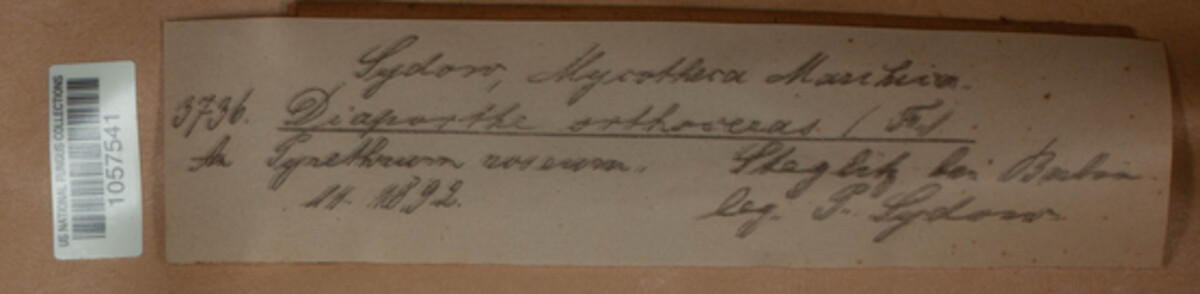 Sydow, Mycotheca Marchica.
3736. Diaporthe orthoceras (Fr.)
An Pyrethrum roseum. Steglitz bei Berlin.
11. 1892.
leg. P. Sydow.
US NATIONAL FUNGUS COLLECTIONS
1057541